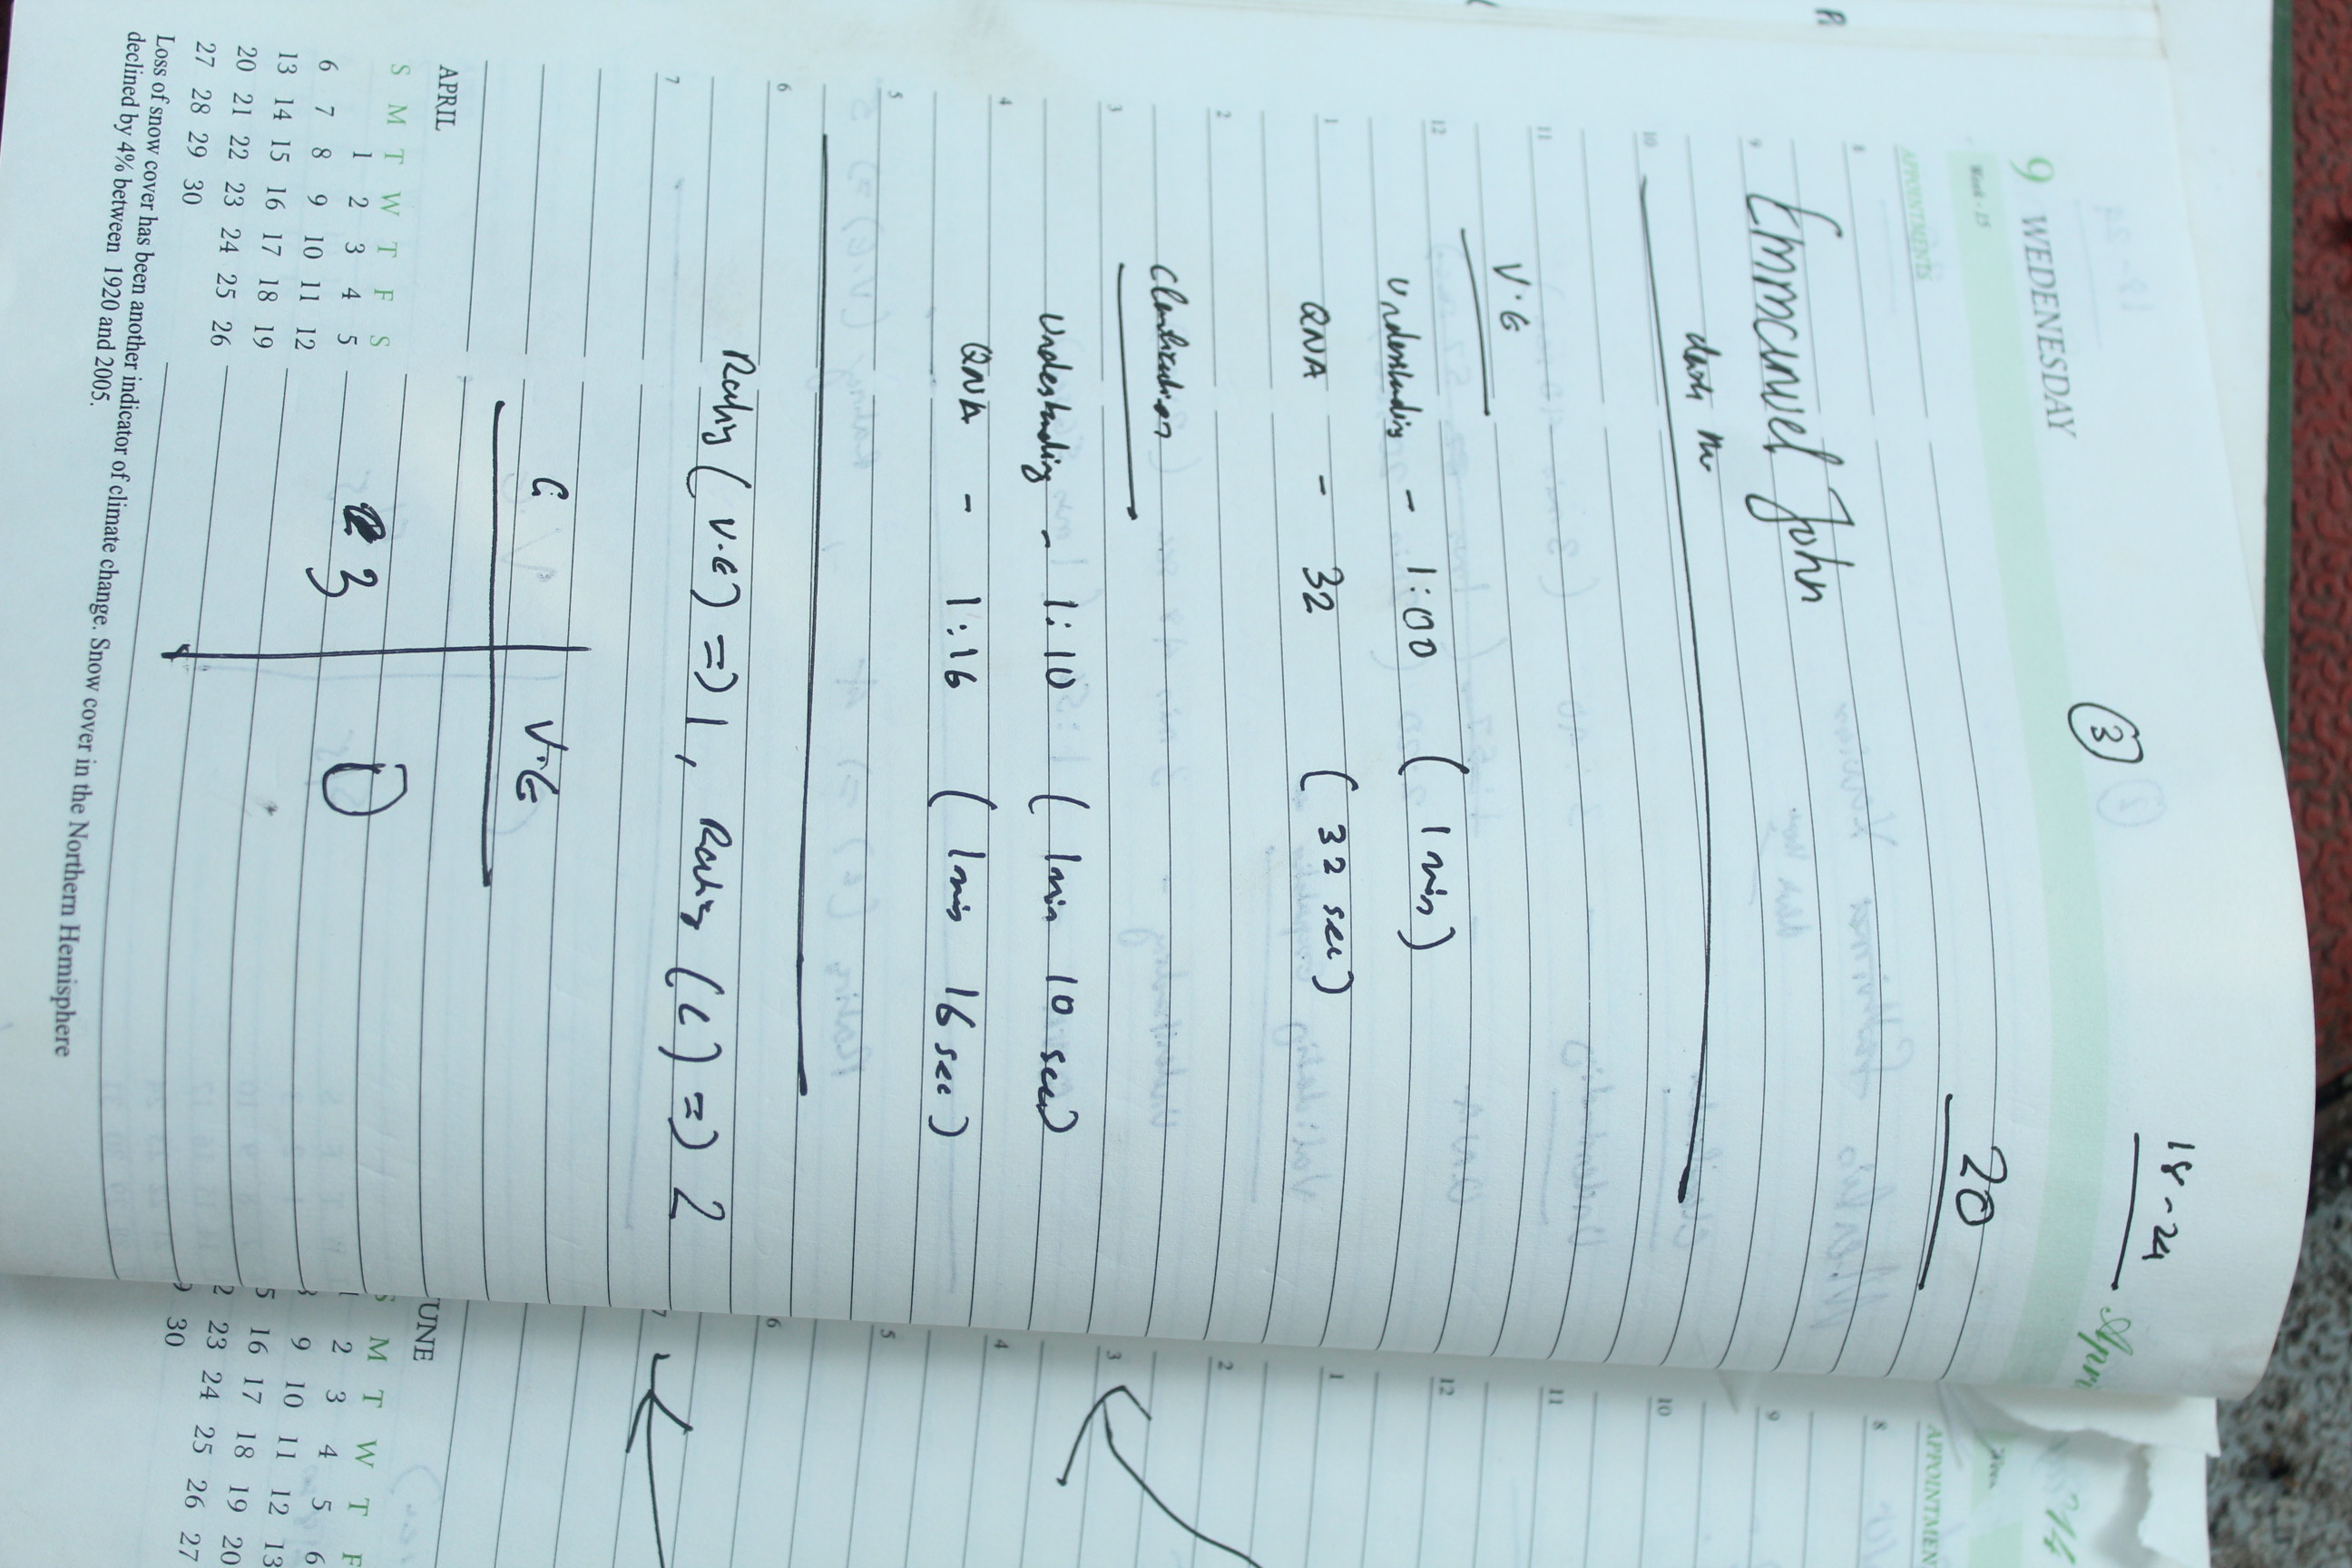 18-24
3
April
9 WEDENESDAY
Week - 15
20
APPOINTMENTS
8
Emmanuel John
9
10
11
V.E
12
Understanding - 1:00 (1 min)
1
QNA - 32 (32 sec)
2
Clarification
3
Understanding - 1:10 (1 min 10 sec)
4
QNA - 1:16 (1 min 16 sec)
5
6
Rating (V.E) => 1, Rating (C) => 2
7
C V.E
3 0
APRIL
S M T W T F S
1 2 3 4 5
6 7 8 9 10 11 12
13 14 15 16 17 18 19
20 21 22 23 24 25 26
27 28 29 30
Loss of snow cover has been another indicator of climate change. Snow cover in the Northern Hemisphere
declined by 4% between 1920 and 2005.
14
APPOINTMEN
8
9
10
11
12
1
2
3
4
5
6
7
JUNE
S M T W T F
1 2 3 4 5 6
9 10 11 12 13
16 17 18 19 20
23 24 25 26 27
30